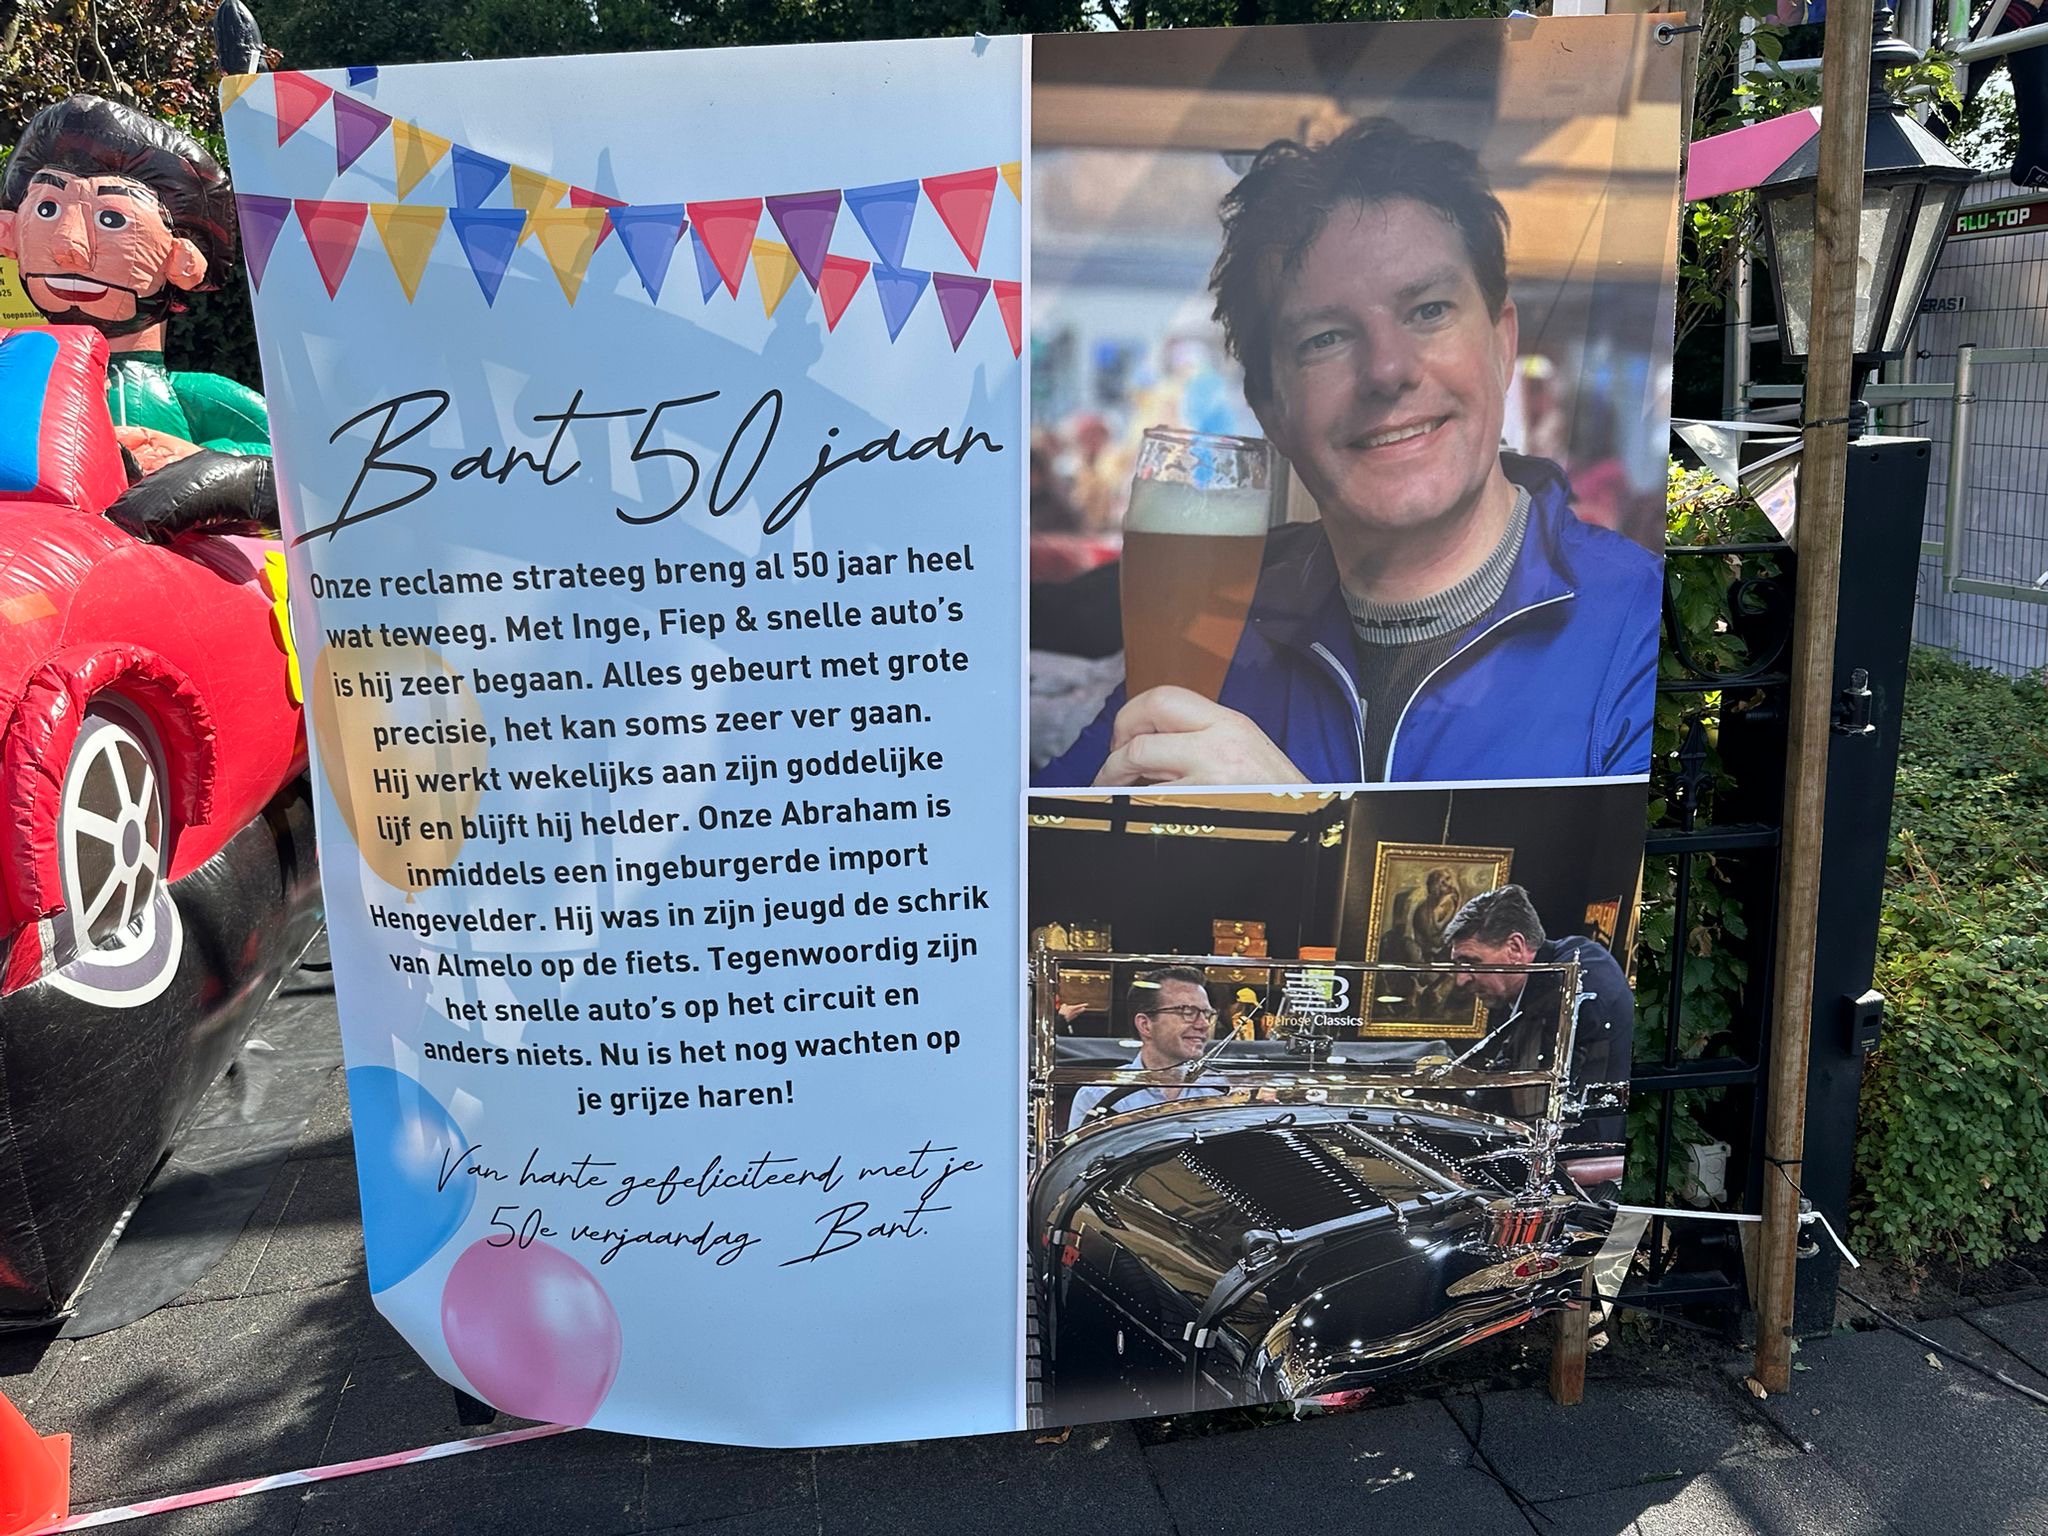 Bart 50 jaar
Onze reclame strateeg breng al 50 jaar heel
wat teweeg. Met Inge, Fiep & snelle auto's
is hij zeer begaan. Alles gebeurt met grote
precisie, het kan soms zeer ver gaan.
Hij werkt wekelijks aan zijn goddelijke
lijf en blijft hij helder. Onze Abraham is
inmiddels een ingeburgerde import
Hengevelder. Hij was in zijn jeugd de schrik
van Almelo op de fiets. Tegenwoordig zijn
het snelle auto's op het circuit en
anders niets. Nu is het nog wachten op
je grijze haren!
Van harte gefeliciteerd met je
50e verjaardag Bart.
B
Belrose Classics
ALU-TOP
toepassing